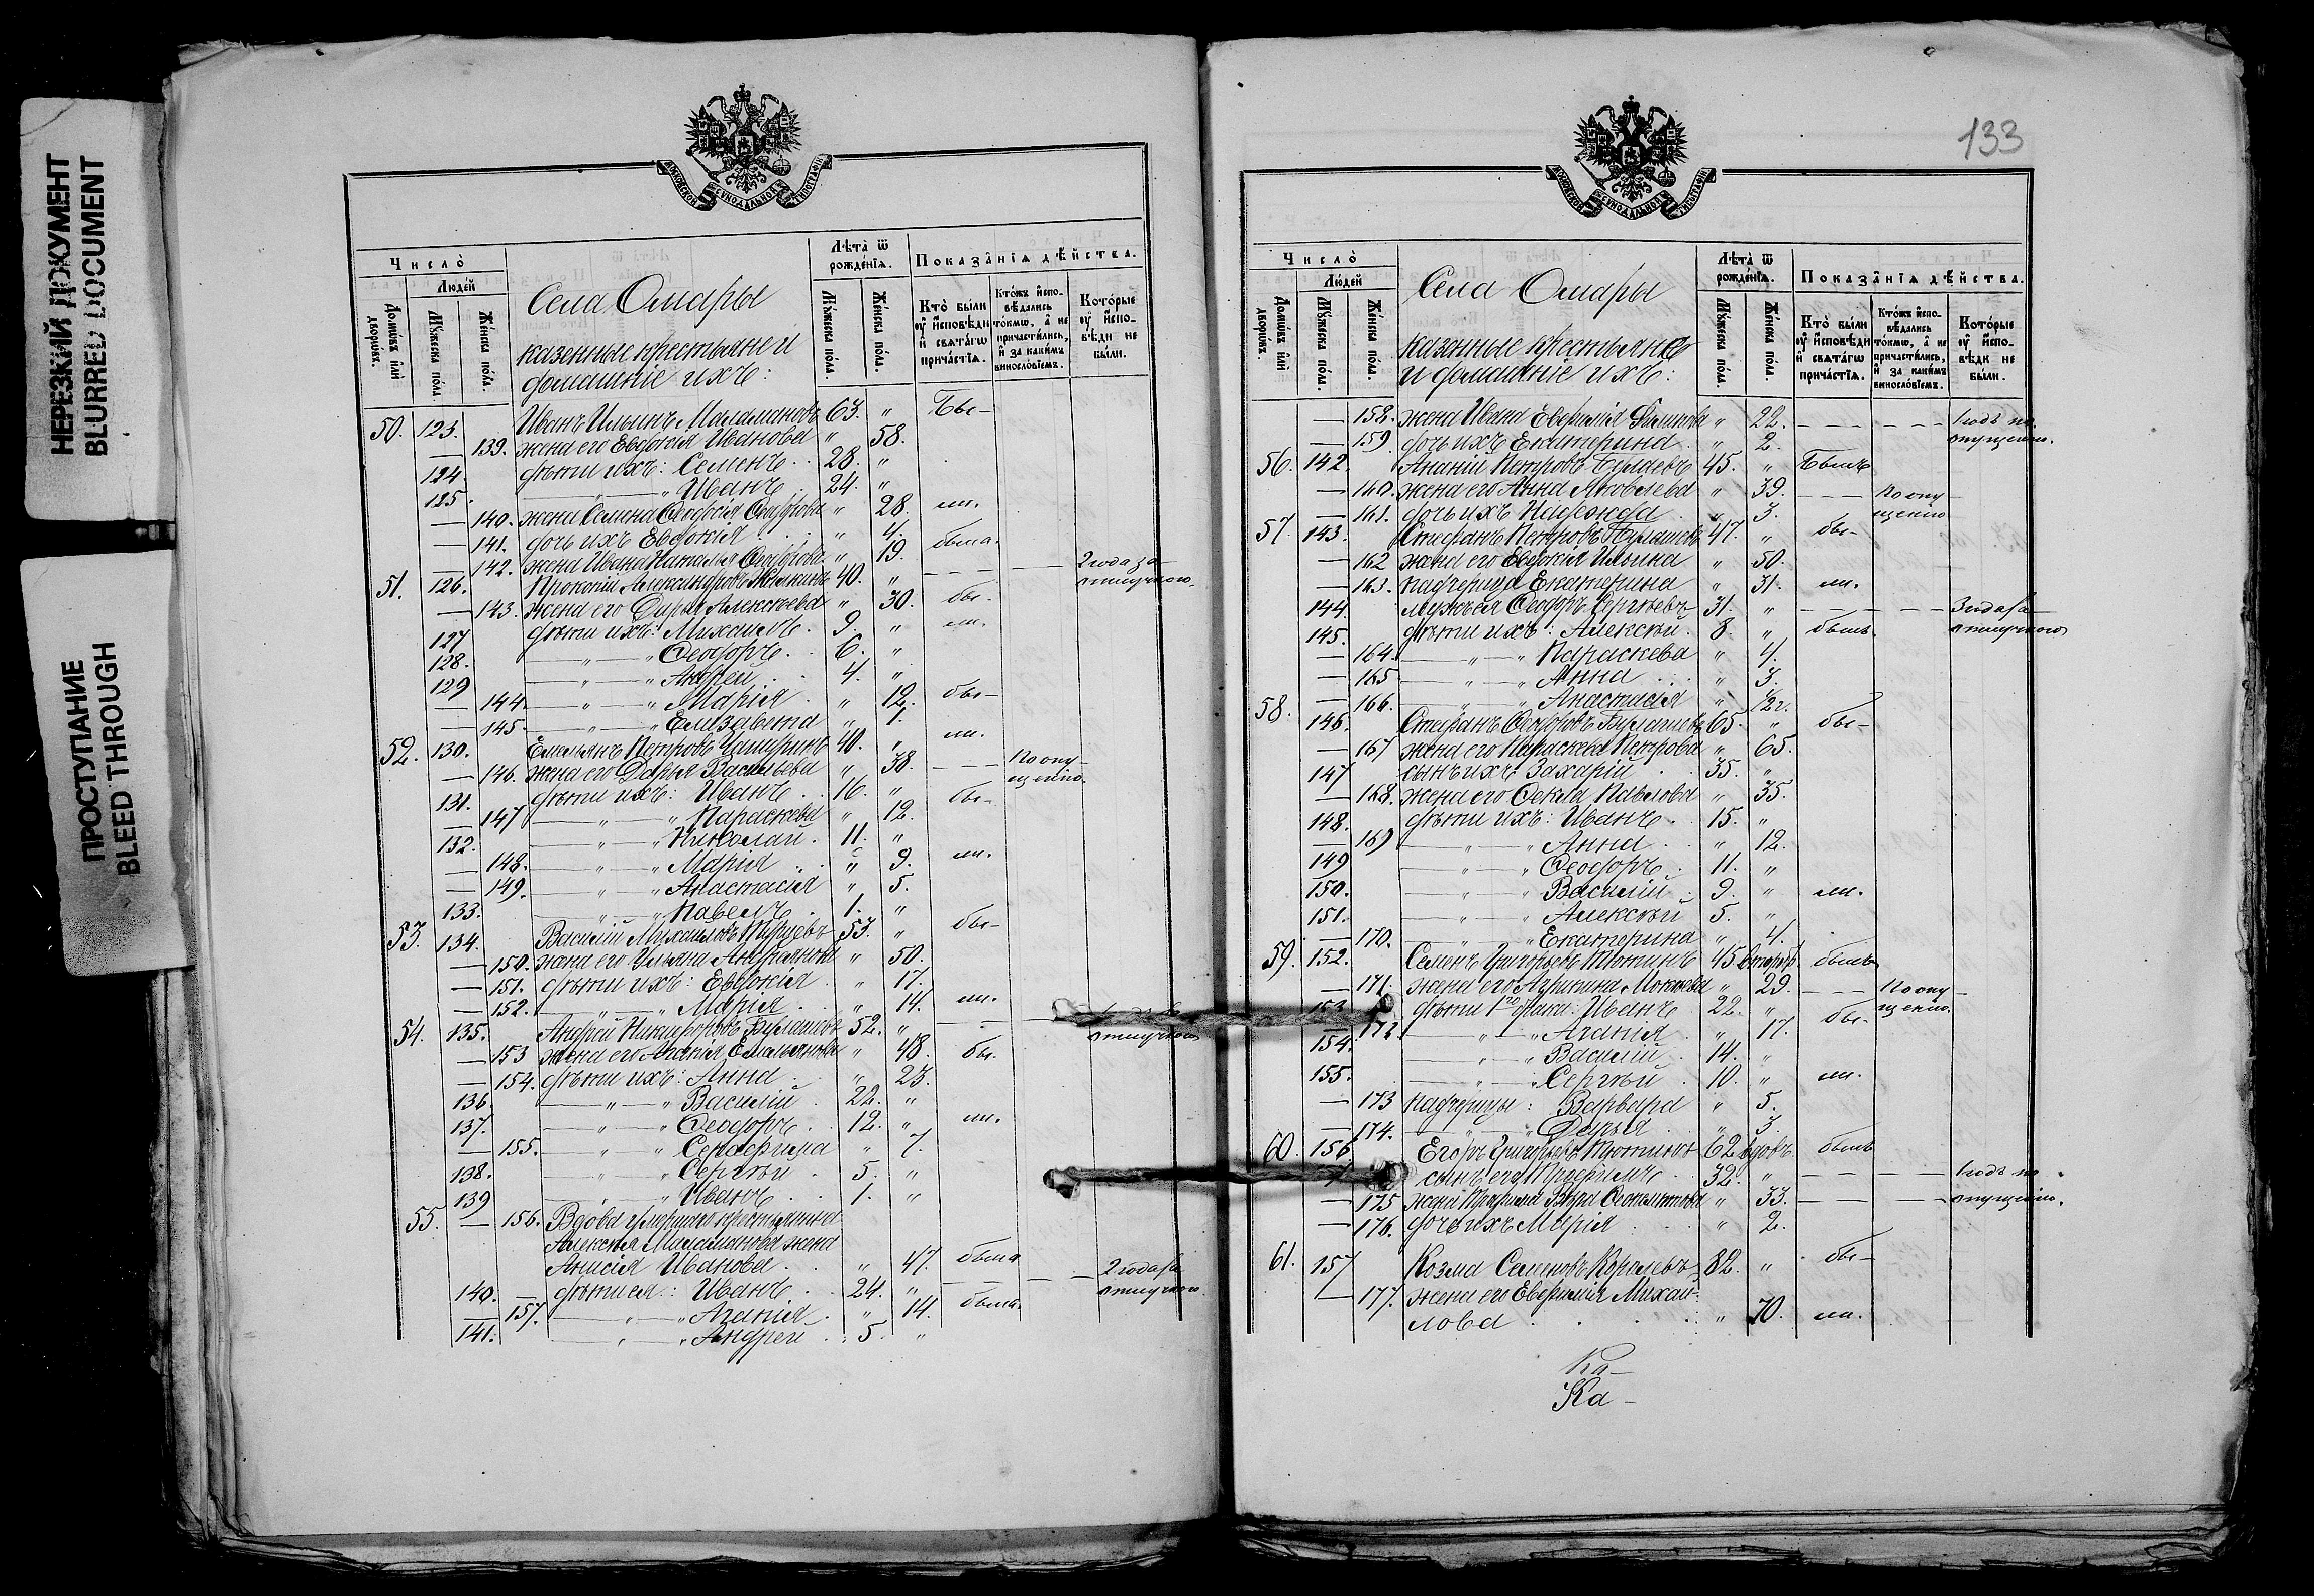 НЕРЕЗКИЙ ДОКУМЕНТ
BLURRED DOCUMENT
ПРОСТУПАНИЕ
BLEED THROUGH
МОСКОВСКОЙ СѴНОДАЛЬНОЙ ТИПОГРАФІИ
Число̀
Людей
Домѡвъ или дворѡвъ.
Мꙋжеска пола.
Женска пола.
Села Омары
казенные крестьяне и
домашніе ихъ:
Лѣта ѿ рожденїѧ.
Мꙋжеска пола.
Женска пола.
Показанїѧ дѣйства.
Кто были оу исповѣди и свѧтагѡ причастїѧ.
Ктожъ исповѣдались токмѡ, а не причастились, и за какимъ винословїемъ.
Которые оу исповѣди не были.
50. 123. Иванъ Ильинъ Маламановъ 63. " Бы-
— 139. жена его Евдокія Иванова " 58.
124. дѣти ихъ: Семенъ 28. "
125. — " — " Иванъ 24. "
— 140. жена Семена Ѳеодосія " 28. ли.
— 141. дочь ихъ Евдокія " 4.
— 142. жена Ивана Наталья " 19. была.
51. 126. Прокопій Александровъ 40. " — — — 2 года за отлучкою.
— 143. жена его Дарья Алексѣева " 30. бы-
127 дѣти ихъ: Михаилъ 9. " ли.
128. — " — " Ѳеодоръ 6. "
129 — " — " Андрей 4. "
— 144. — " — " Марія " 12. бы-
— 145. — " — " Елизавета " 1. ли.
52. 130. Емельянъ Петровъ 40. "
— 146. жена его Дарья Васильева " 38. — — По опущенію.
131. дѣти ихъ: Иванъ 16. " бы-
— 147 — " — " Параскева " 12.
132. — " — " Николай 11. "
— 148. — " — " Марія " 9. ли.
— 149. — " — " Анастасія " 5.
133. — " — " Павелъ 1. "
53. 134. Василій Михайловъ 53. " бы-
— 150. жена его Ульяна " 50.
— 151. дѣти ихъ: Евдокія " 17.
— 152. — " — " Марія " 14. ли.
54. 135. Андрей Никифоровъ 52. " — — отлучкою
— 153 жена его Агапія Емельянова " 48. бы-
— 154. дѣти ихъ: Анна " 23.
136. — " — " Василій 22. "
137. — " — " Ѳеодоръ 12. " ли.
— 155. — " — " " 7.
138. — " — " Сергѣй 5. "
139 — " — " Иванъ 1. "
55. — 156. Вдова умершаго крестьянина
Алексѣя Маламанова жена
Анисія Иванова " 47. была
140. — дѣти ея: Иванъ 24. " — — — 2 года за отлучкою.
157. — " — " Агапія " 14. была.
141. — " — " Андрей 5. "
133
МОСКОВСКОЙ СѴНОДАЛЬНОЙ ТИПОГРАФІИ
Число̀
Людей
Домѡвъ или дворѡвъ.
Мꙋжеска пола.
Женска пола.
Села Омары
казенные крестьяне
и домашніе ихъ:
Лѣта ѿ рожденїѧ.
Мꙋжеска пола.
Женска пола.
Показанїѧ дѣйства.
Кто были оу исповѣди и свѧтагѡ причастїѧ.
Ктожъ исповѣдались токмѡ, а не причастились, и за какимъ винословїемъ.
Которые оу исповѣди не были.
— 158. жена Ивана Евфимія Филипова " 22. — — — 1 годъ по опущенію.
— 159 дочь ихъ Екатерина " 2.
56. 142. Ананій Петровъ 45. " Былъ
— 160. жена его Анна Яковлева " 39. — — По опущенію
— 161. дочь ихъ Надежда " 3.
57. 143. Стефанъ Петровъ 47. " бы-
— 162 жена его Евдокія Ильина " 50.
— 163. падчерица Екатерина " 31. ли.
144. мужъ ея Ѳеодоръ Сергѣевъ 31. " — — — 3 года за отлучкою
145. дѣти ихъ: Алексѣй 8. " былъ.
— 164. — " — " Параскева " 4.
— 165 — " — " Анна " 3.
— 166. — " — " Анастасія " 1/2 г.
58. 146. Стефанъ Ѳеодоровъ 65. " бы-
— 167 жена его Параскева Петрова " 65.
147 сынъ ихъ Захарій 35. "
— 168. жена его Ѳекла Павлова " 35.
148. дѣти ихъ: Иванъ 15. "
— 169 — " — " Анна " 12.
149 — " — " Ѳеодоръ 11. "
150. — " — " Василій 9. " ли.
151. — " — " Алексѣй 5. "
— 170. — " — " Екатерина " 4.
59. 152. Семенъ Григорьевъ Тютинъ 45 былъ
— 171. жена его " 29. — — По опущенію.
153. дѣти 1го брака: Иванъ 22. " бы-
— 172 — " — " Агапія " 17.
154. — " — " Василій 14. "
155. — " — " Сергѣй 10. " ли.
— 173 падчерицы: Варвара " 5.
— 174. — " — " Дарья " 3.
60. 156 Егоръ Григорьевъ Тютинъ 62 вдовъ. былъ
сынъ его 32. " — — — 1 годъ по опущенію.
— 175 жена " 33. — —
— 176. дочь ихъ Марія " 2.
61. 157 Козма Семеновъ Королевъ 82. " бы-
— 177. жена его Евфимія Михай-
лова " 70. ли.
Ка-
Ка-